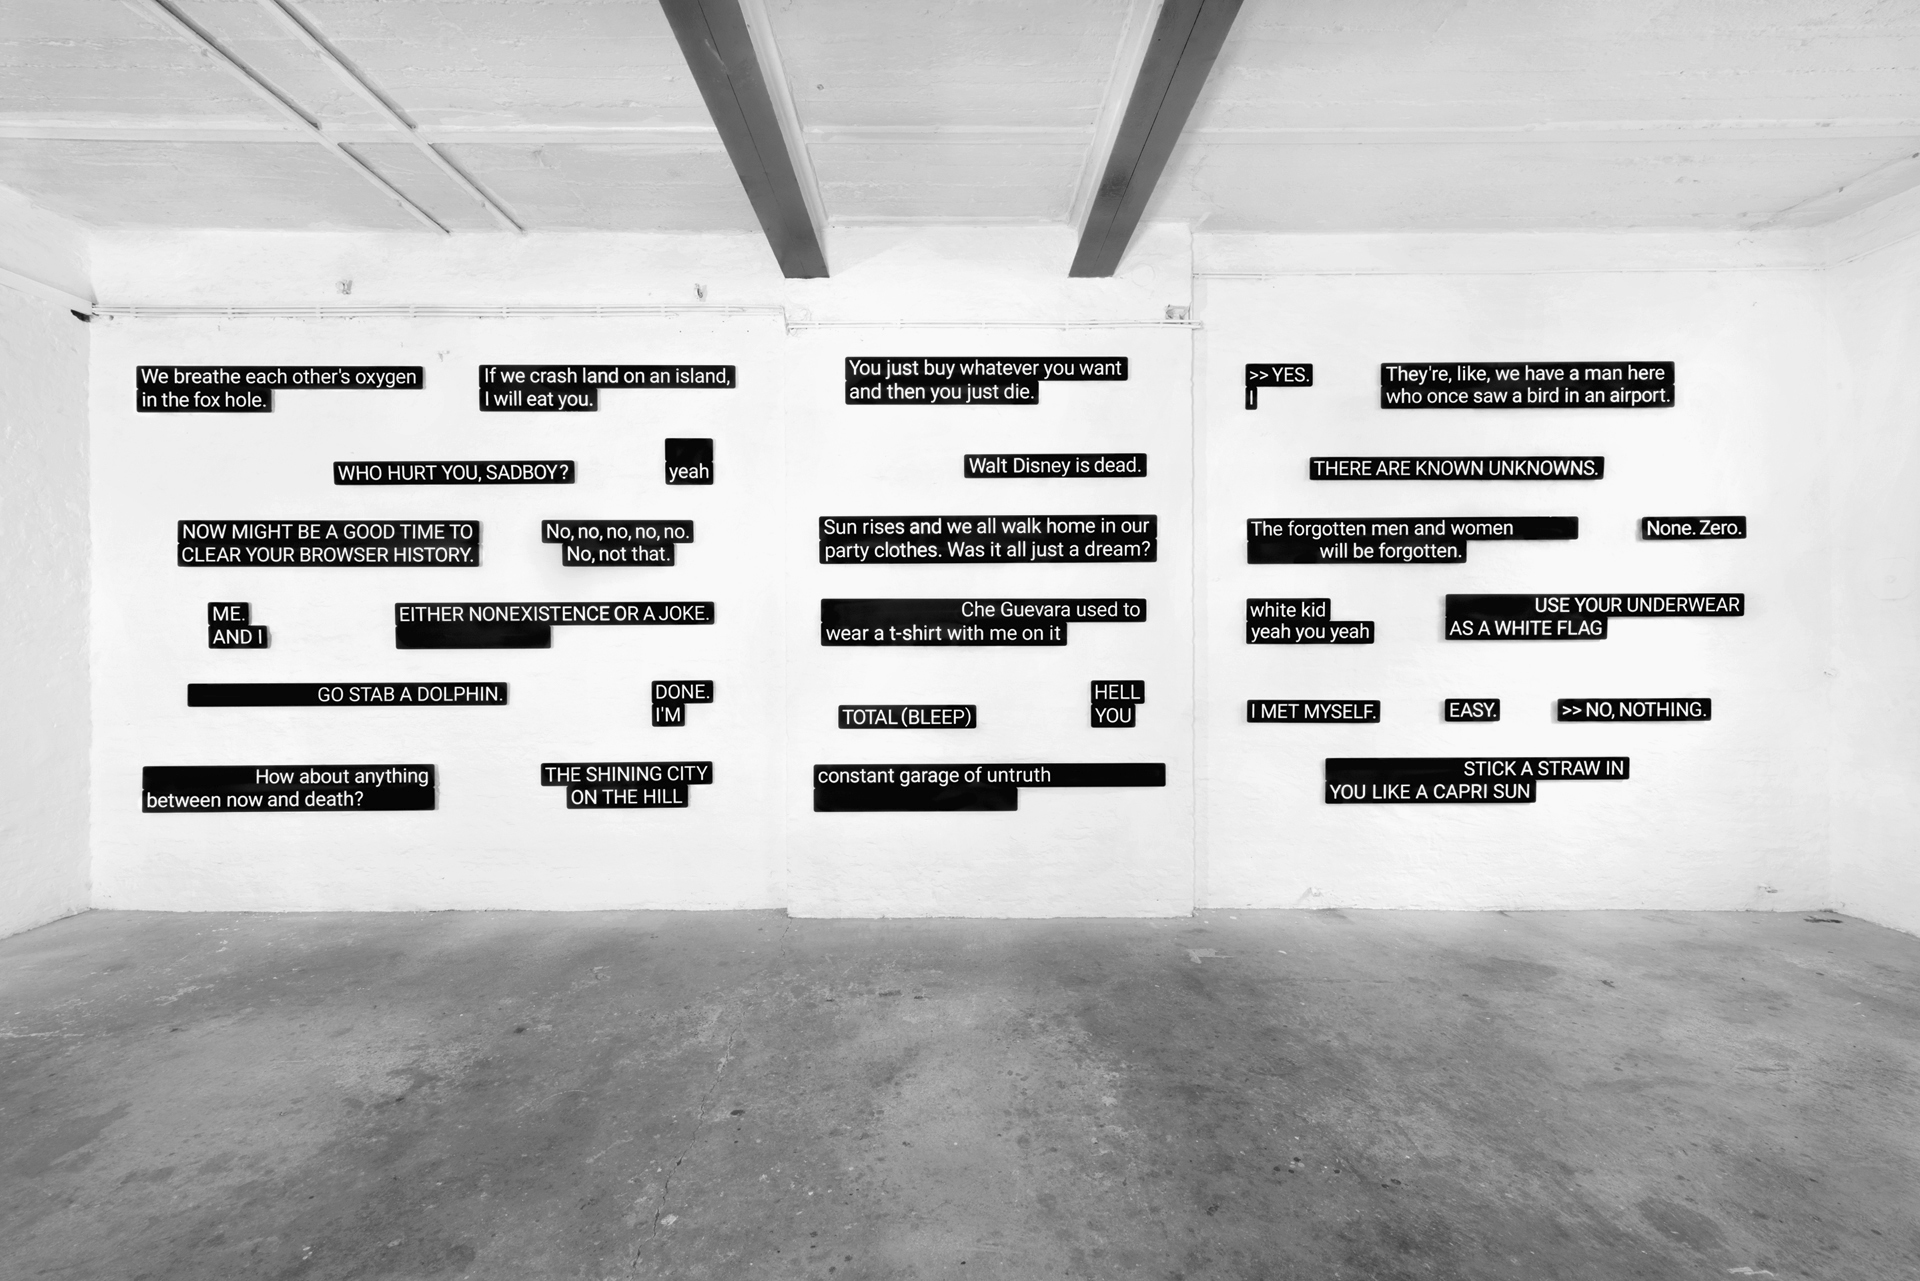 We breathe each other's oxygen
in the fox hole.
If we crash land on an island,
I will eat you.
WHO HURT YOU, SADBOY?
yeah
NOW MIGHT BE A GOOD TIME TO
CLEAR YOUR BROWSER HISTORY.
No, no, no, no, no.
No, not that.
ME.
AND I
EITHER NONEXISTENCE OR A JOKE.
GO STAB A DOLPHIN.
DONE.
I'M
How about anything
between now and death?
THE SHINING CITY
ON THE HILL
You just buy whatever you want
and then you just die.
Walt Disney is dead.
Sun rises and we all walk home in our
party clothes. Was it all just a dream?
Che Guevara used to
wear a t-shirt with me on it
TOTAL (BLEEP)
HELL
YOU
constant garage of untruth
>> YES.
I
They're, like, we have a man here
who once saw a bird in an airport.
THERE ARE KNOWN UNKNOWNS.
The forgotten men and women
will be forgotten.
None. Zero.
white kid
yeah you yeah
USE YOUR UNDERWEAR
AS A WHITE FLAG
I MET MYSELF.
EASY.
>> NO, NOTHING.
STICK A STRAW IN
YOU LIKE A CAPRI SUN